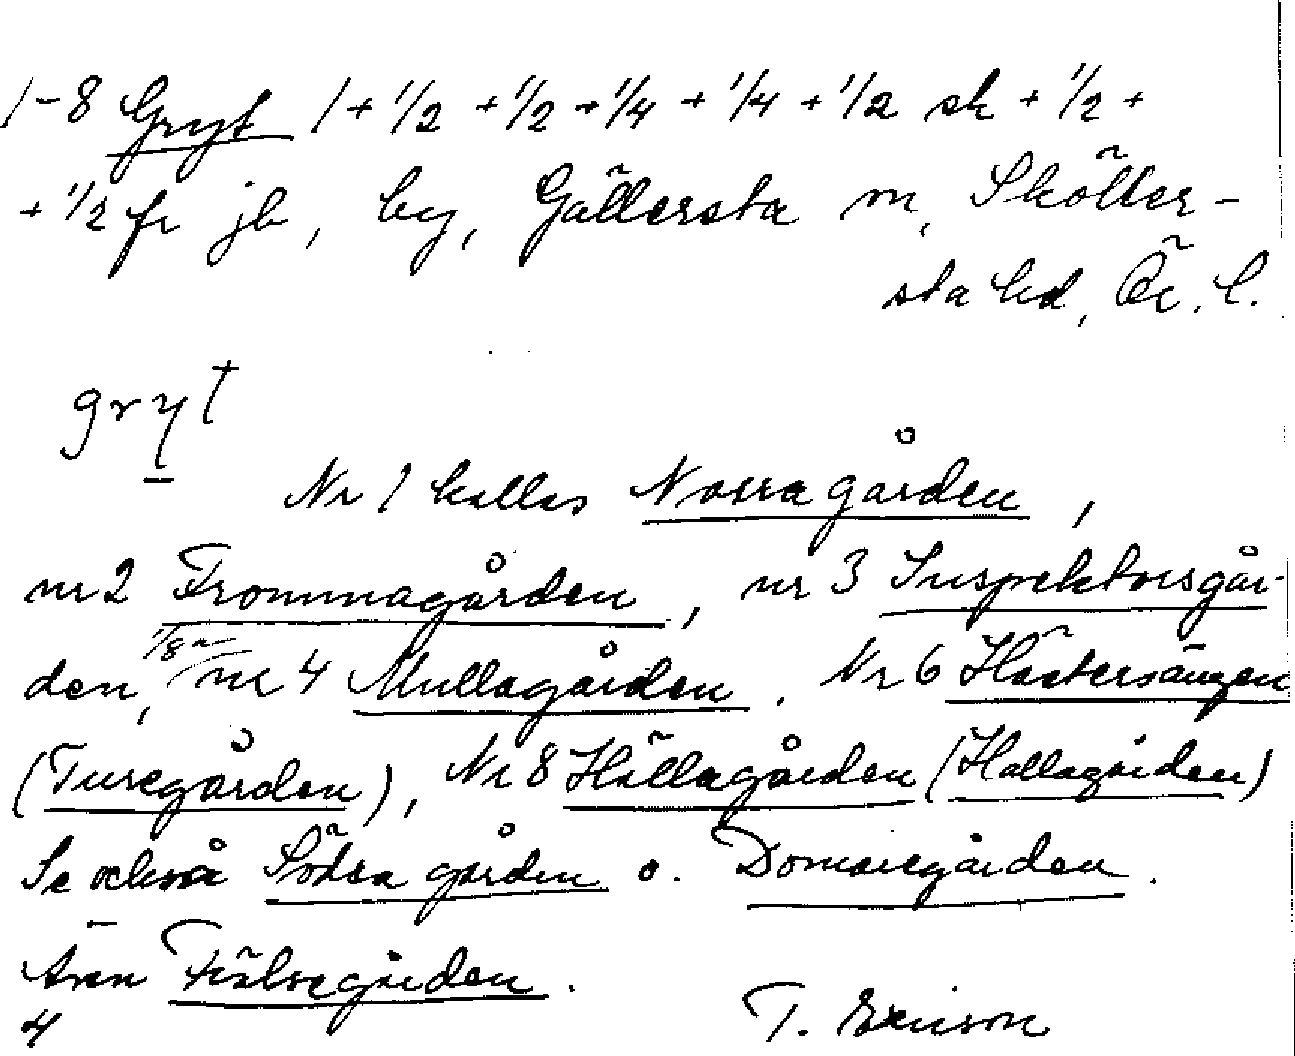 1-8 Gryt 1 + 1/2 + 1/2 + 1/4 + 1/4 + 1/2 sk + 1/2 +
+ 1/2 fr jb, by, Gällersta sn, Sköller-
sta hd, Ör. l.
gryt
Nr 1 kallas Norra gården,
nr 2 Frommagården, nr 3 Inspektorsgår-
den, 1/8 nr 4 Mullagården. Nr 6 Hästersängen
(Turegården), Nr 8 Hällagården (Hallagården)
Se också Södra gården o. Domaregården.
Även Frälsegården.
4 T. Ericson